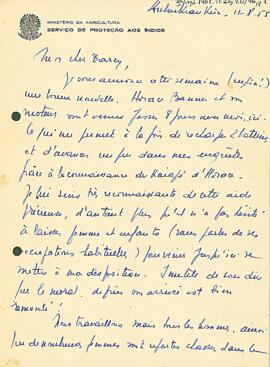 MINISTÉRIO DA AGRICULTURA
SERVIÇO DE PROTEÇÃO AOS ÍNDIOS
Mon cher Darcy,
Je vous annonce cette semaine (enfin!)
une bonne nouvelle. Horace Banner et son
moteur sont venus passer 8 jours avec moi, ici.
ce qui me permet à la fois de recharger 2 batteries
et d'avancer un peu dans mes enquêtes
grâce à la connaissance du Kaiapó d'Horace.
Je lui suis très reconnaissante de cette aide
précieuse, d'autant plus qu'il n'a pas hésité
à laisser femme et enfants (sans parler de ses
occupations habituelles) pour venir jusqu'ici se
mettre à ma disposition. Inutile de vous dire
que le moral, depuis son arrivée est bien
"remonté"!
Nous travaillons mais tous les hommes, ainsi
que de nombreuses femmes sont repartis chasser dans la